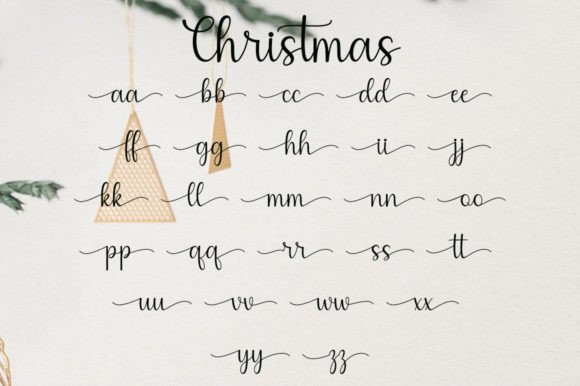 Christmas
aa bb cc dd ee
ff gg hh ii jj
kk ll mm nn oo
pp qq rr ss tt
uu vv ww xx
yy zz